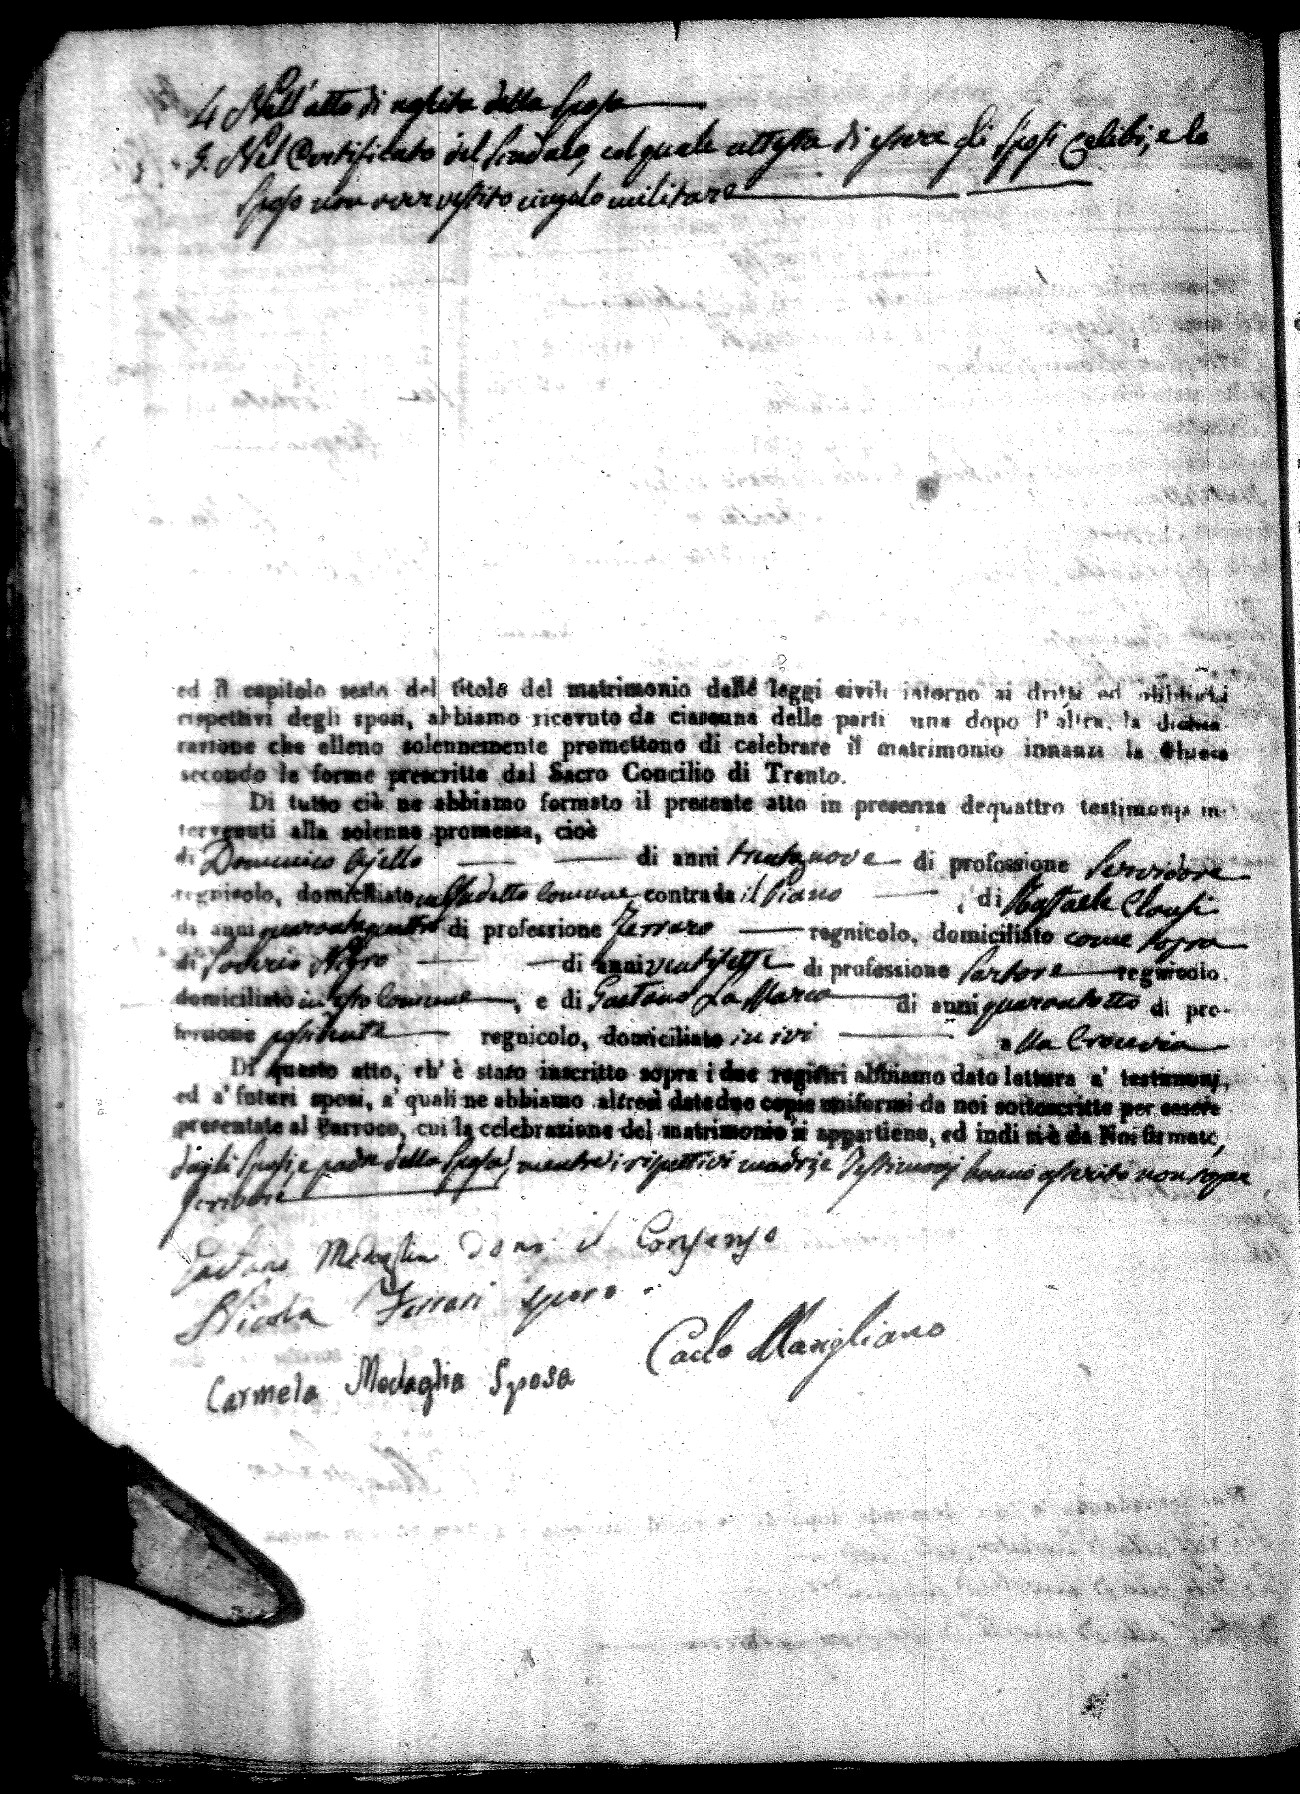 4 Nell'atto di nascita della Sposa
5. Nel Certificato del Sindaco, col quale attesta di essere gli Sposi celibi, e lo
Sposo non aver vestito cingolo militare
ed il capitolo sesto del titolo del matrimonio delle leggi civili intorno ai dritti ed obblighi
rispettivi degli sposi, abbiamo ricevuto da ciascuna delle parti una dopo l'altra, la dichia-
razione che elleno solennemente promettono di celebrare il matrimonio innanzi la Chiesa
secondo le forme prescritte dal Sacro Concilio di Trento.
Di tutto ciò ne abbiamo formato il presente atto in presenza dequattro testimonja in-
tervenuti alla solenne promessa, cioè
di Domenico Ajello di anni trentanove di professione Servidore
regnicolo, domiciliato in detto Comune contrada il Piano , di Raffaele Clausi
di anni quarantaquattro di professione Ferraro regnicolo, domiciliato come sopra
di Saverio Nigro di anni ventisette di professione Sartore regnicolo
domiciliato in Comune , e di Gaetano La Marca di anni quarantotto di pro-
fessione possidente regnicolo, domiciliato in ivi alla
Di questo atto, ch' è stato inscritto sopra i due registri abbiamo dato lettura a' testimonj,
ed a' futuri sposi, a' quali ne abbiamo altresì date due copie uniformi da noi sottoscritte per essere
presentate al Parroco, cui la celebrazione del matrimonio si appartiene, ed indi si è da Noi firmato,
dagli Sposi, e padre della Sposa, mentre i rispettivi madri, e Testimonj hanno asserito non sapere
scrivere
Gaetano Medaglia dono il Consenso
Nicola Ferrari sposo
Carlo Marigliano
Carmela Medaglia Sposa